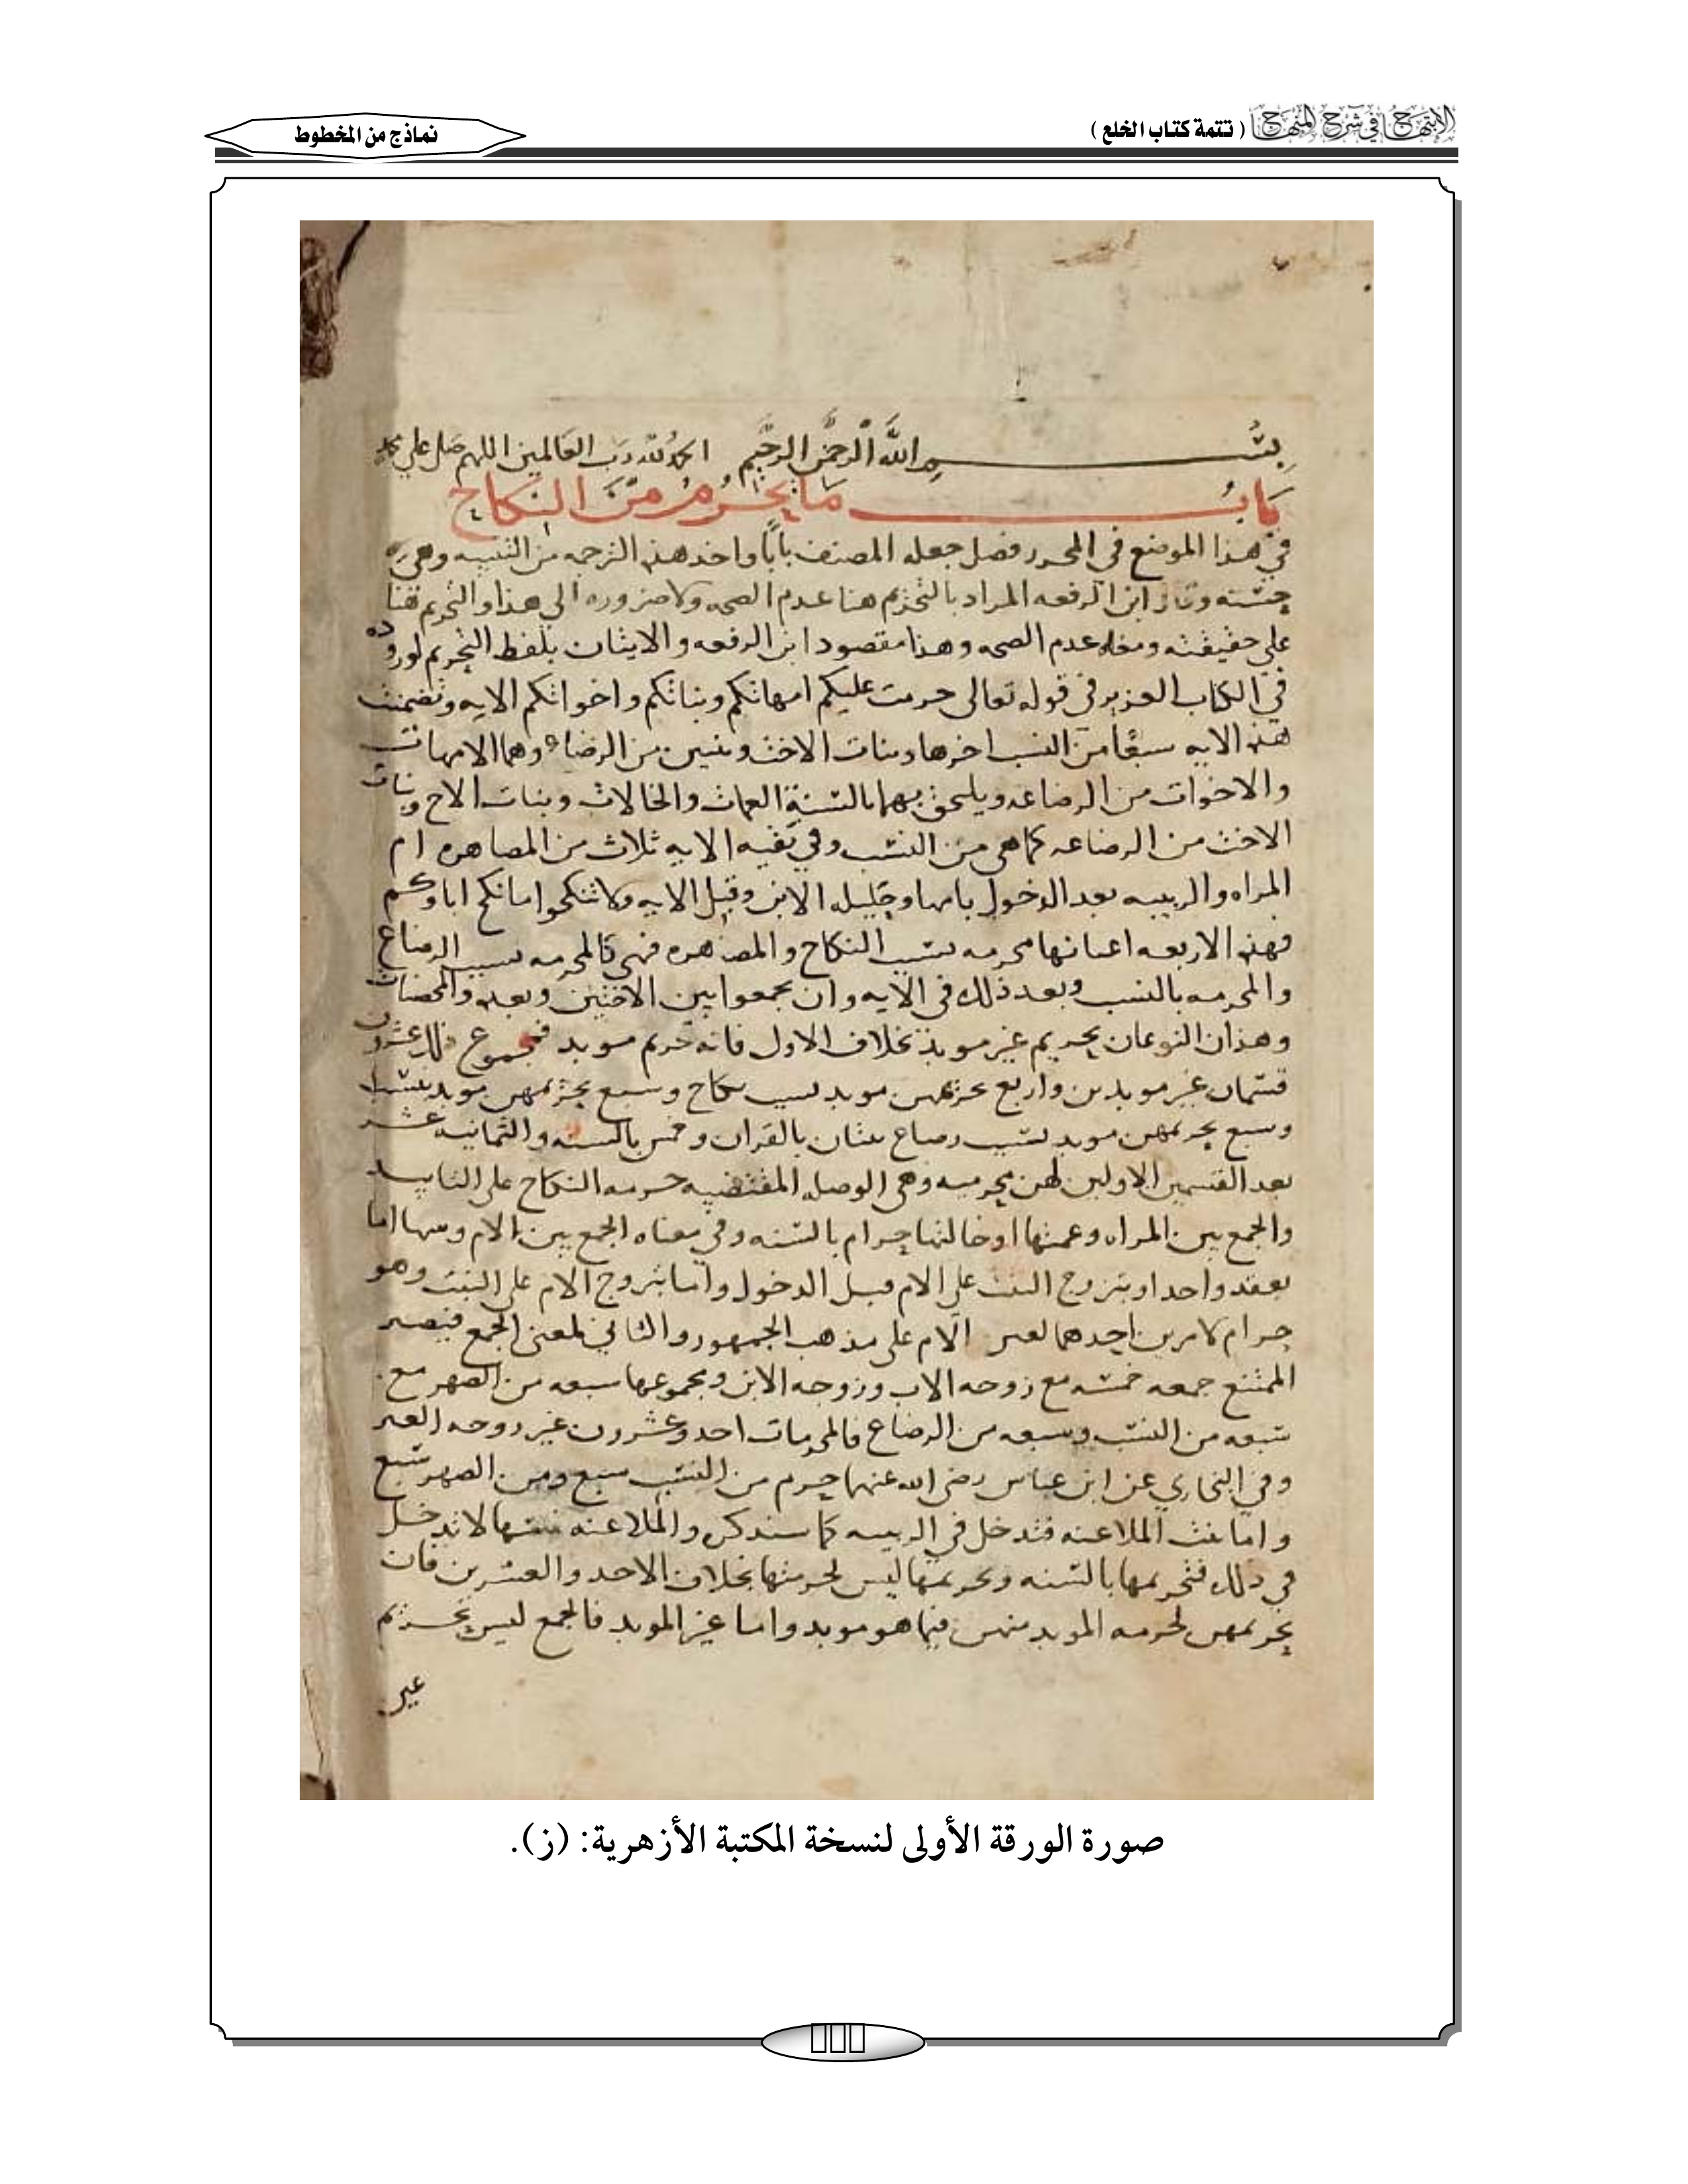 الابتهاج في شرح المنهاج ( تتمة كتاب الخلع )
نماذج من المخطوط
بسم الله الرحمن الرحيم الحمد لله رب العالمين اللهم صل على محمد
باب ما يحرم من النكاح
في هذا الموضع في المحرر فصل جعله المصنف بابا واخد هذه الترجمه من التنبيه وهي
حسنه وقال ابن الرفعه المراد بالتحريم هنا عدم الصحه ولا ضروره الى هذا والتحريم هنا
على حقيقته ومعه عدم الصحه وهذا مقصود ابن الرفعه والاتيان بلفظ التحريم لوروده
في الكتاب العزيز في قوله تعالى حرمت عليكم امهاتكم وبناتكم واخواتكم الايه وتضمنت
هذه الايه سبعا من النسب اخرها وبنات الاخت وثنتين من الرضاع وهما الامهات
والاخوات من الرضاعه ويلحق بهما بالسنة العمات والخالات وبنات الاخ وبنات
الاخت من الرضاعه كما هي من النسب وفي بقيه الايه ثلاث من المصاهره ام
المراه والربيبه بعد الدخول بامها وحليله الابن وقبل الايه ولا تنكحوا ما نكح اباوكم
فهذه الاربعه اعيانها محرمه بسبب النكاح والمصاهره فهي كالمحرمه بسبب الرضاع
والمحرمه بالنسب وبعد ذلك في الايه وان تجمعوا بين الاختين وبعده والمحصنات
وهذان النوعان تحريم غير موبد بخلاف الاول فانه تحريم موبد فمجموع ذلك عشرون
قسمان غير موبدين واربع تحريمهن موبد بسبب نكاح وسبع تحريمهن موبد بنسب
وسبع تحريمهن موبد بسبب رضاع ثنتان بالقران وخمس بالسنه والثمانيه عشر
بعد القسمين الاولين لهن محرميه وهي الوصله المقتضيه حرمه النكاح على التابيد
والجمع بين المراه وعمتها او خالتها حرام بالسنه وفي معناه الجمع بين الام وبنتها اما
بعقد واحد او بتزوج البنت على الام قبل الدخول واما بتزوج الام على البنت وهو
حرام لامرين احدهما الام على مذهب الجمهور والثاني لمعنى الجمع فيصير
الممتنع جمعه خمسه مع زوجه الاب وزوجه الابن ومجموعها سبعه من الصهر مع
سبعه من النسب وسبعه من الرضاع فالمحرمات احد وعشرون غير زوجه الغير
وفي البخاري عن ابن عباس رضي الله عنهما حرم من النسب سبع ومن الصهر سبع
واما بنت الملاعنه فتدخل في الربيبه كما سنذكر والملاعنه نفسها لا تدخل
في ذلك فتحريمها بالسنه وتحريمها ليس لحرمتها بخلاف الاحد والعشرين فان
تحريمهن لحرمه الموبد منهن فيما هو موبد واما غير الموبد فالجمع ليس تحريم
غير
صورة الورقة الأولى لنسخة المكتبة الأزهرية: (ز).